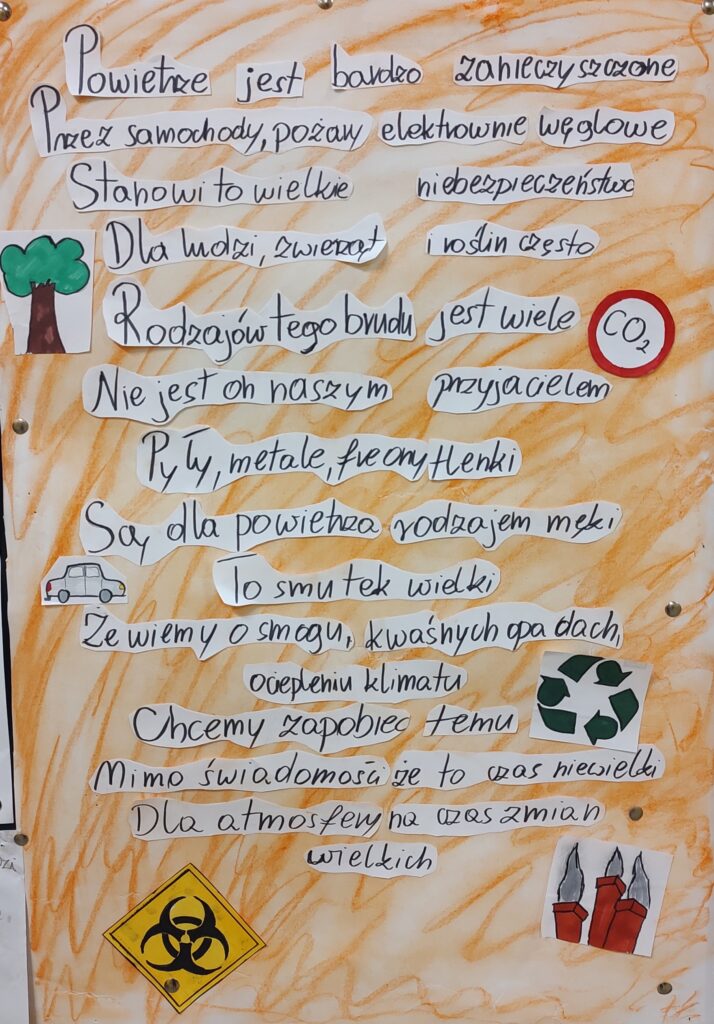 Powietrze jest bardzo zanieczyszczone
Przez samochody, pożary elektrownie węglowe
Stanowi to wielkie niebezpieczeństwo
Dla ludzi, zwierząt i roślin często
Rodzajów tego brudu jest wiele
CO2
Nie jest on naszym przyjacielem
Pyły, metale, freony tlenki
Są dla powietrza rodzajem męki
To smutek wielki
Że wiemy o smogu, kwaśnych opadach,
ociepleniu klimatu
Chcemy zapobiec temu
Mimo świadomości że to czas niewielki
Dla atmosfery na czas zmian
wielkich